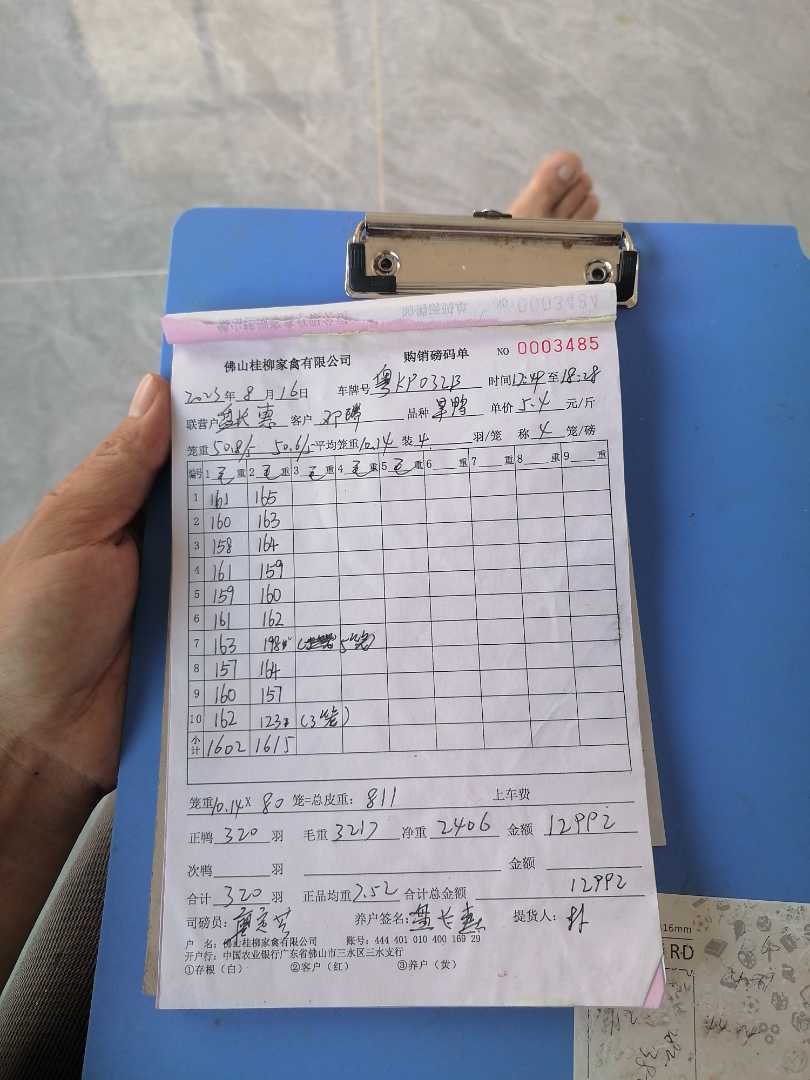 佛山桂柳家禽有限公司 购销磅码单 NO 0003485
2023年8月16日 车牌号 粤KP032B 时间17:49至18:28
联营户 盘长惠 客户 邓 品种 旱鸭 单价 5.4 元/斤
笼重 50.8/5 50.6/5 平均笼重 10.14 装 4 羽/笼 称 4 笼/磅
编号 1 毛 重 2 毛 重 3 毛 重 4 毛 重 5 毛 重 6 重 7 重 8 重 9 重
1 161 165
2 160 163
3 158 164
4 161 159
5 159 160
6 161 162
7 163 198 (5笼)
8 157 164
9 160 157
10 162 123 (3笼)
小计 1602 1615
笼重 10.14 × 80 笼=总皮重: 811 上车费
正鸭 320 羽 毛重 3217 净重 2406 金额 12992
次鸭 羽 金额
合计 320 羽 正品均重 7.52 合计总金额 12992
司磅员: 养户签名: 盘长惠 提货人:
户 名: 佛山桂柳家禽有限公司 账号: 444 401 010 400 169 29
开户行: 中国农业银行广东省佛山市三水区三水支行
①存根(白) ②客户(红) ③养户(黄)
16mm
RD